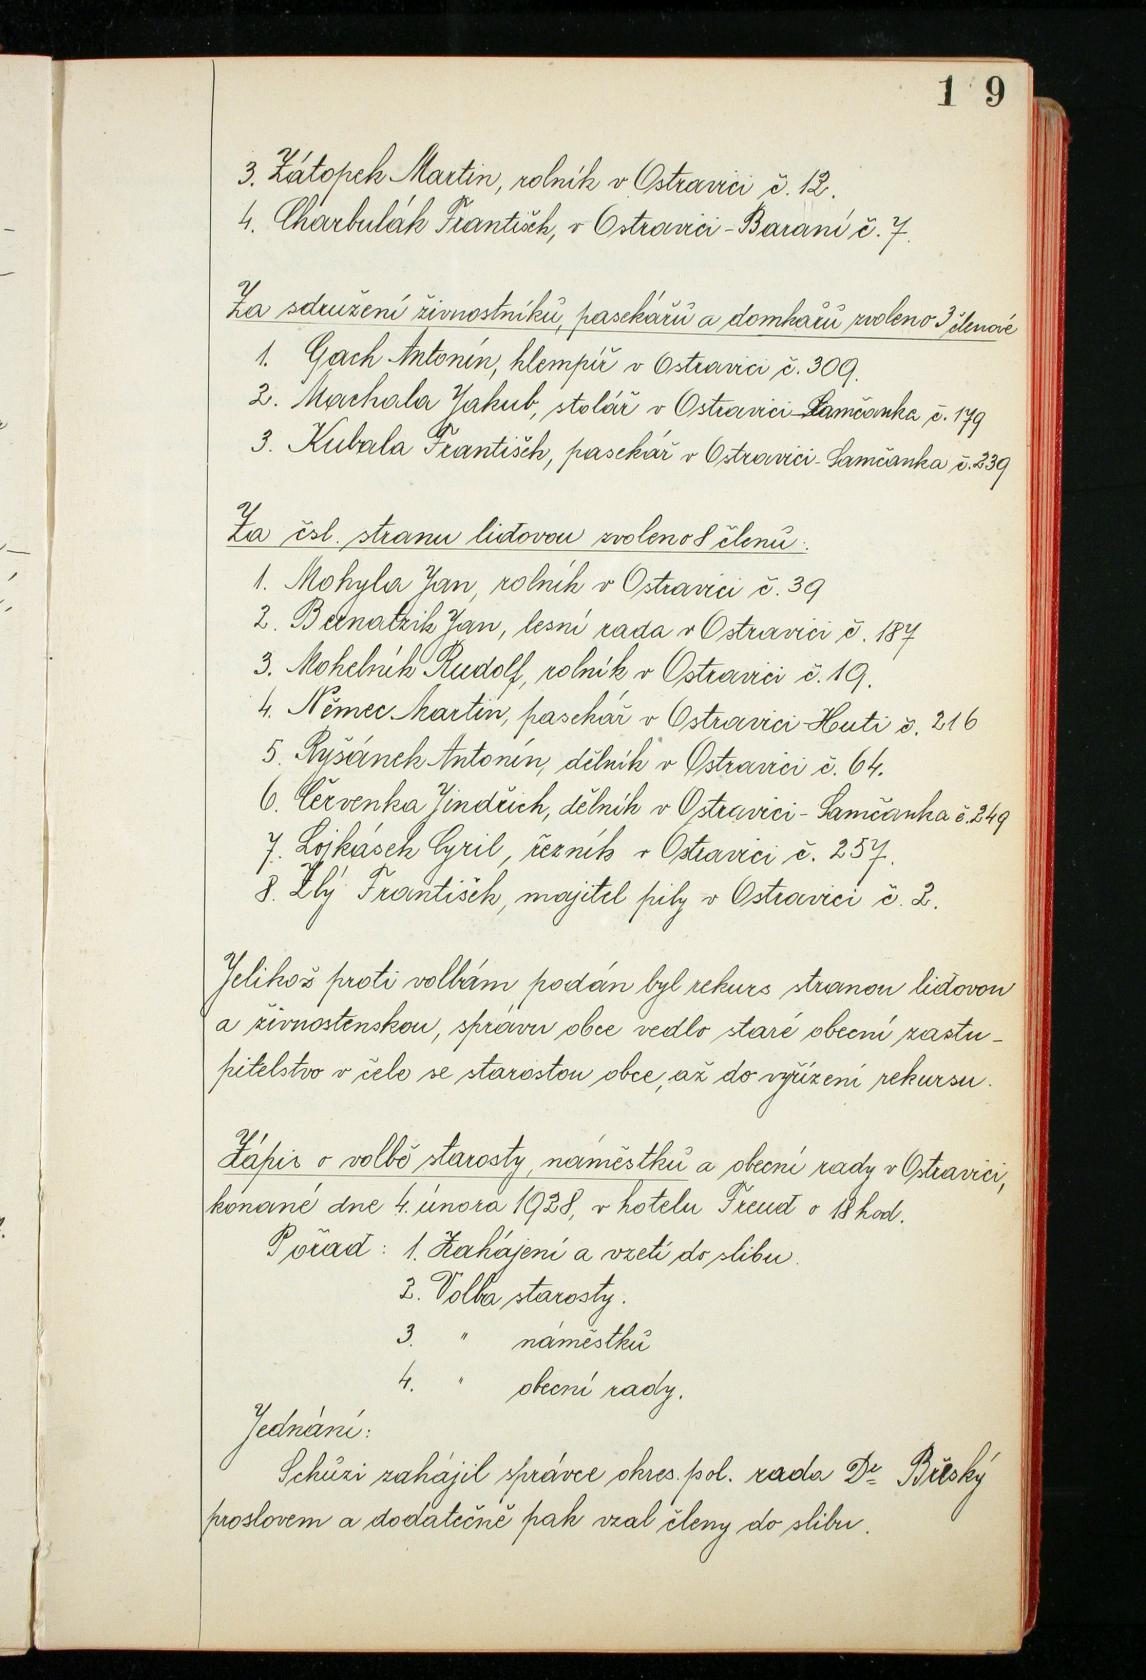 19
3. Zátopek Martin, rolník v Ostravici č. 12.
4. Charbulák František, v Ostravici - Baraní č. 7.
Za sdružení živnostníků, pasekářů a domkářů zvoleno 3 členové
1. Gach Antonín, klempíř v Ostravici č. 309.
2. Machala Jakub, stolář v Ostravici - Samčanka č. 179
3. Kubala František, pasekář v Ostravici - Samčanka č. 239
Za čsl. stranu lidovou zvoleno 8 členů:
1. Mohyla Jan, rolník v Ostravici č. 39
2. Bernatzik Jan, lesní rada v Ostravici č. 187
3. Mohelník Rudolf, rolník v Ostravici č. 19.
4. Němec Martin, pasekář v Ostravici - Huti č. 216
5. Ryšánek Antonín, dělník v Ostravici č. 64.
6. Červenka Jindřich, dělník v Ostravici - Samčanka č. 249
7. Lojkásek Cyril, řezník v Ostravici č. 257.
8. Zlý František, majitel pily v Ostravici č. 2.
Jelikož proti volbám podán byl rekurs stranou lidovou
a živnostenskou, správu obce vedlo staré obecní zastu-
pitelstvo v čele se starostou obce, až do vyřízení rekursu.
Zápis o volbě starosty, náměstků a obecní rady v Ostravici,
konané dne 4. února 1928, v hotelu Freud o 18 hod.
Pořad: 1. Zahájení a vzetí do slibu.
2. Volba starosty.
3. " náměstků
4. " obecní rady.
Jednání:
Schůzi zahájil správce okres. pol. rada Dr Břeský
proslovem a dodatečně pak vzal členy do slibu.